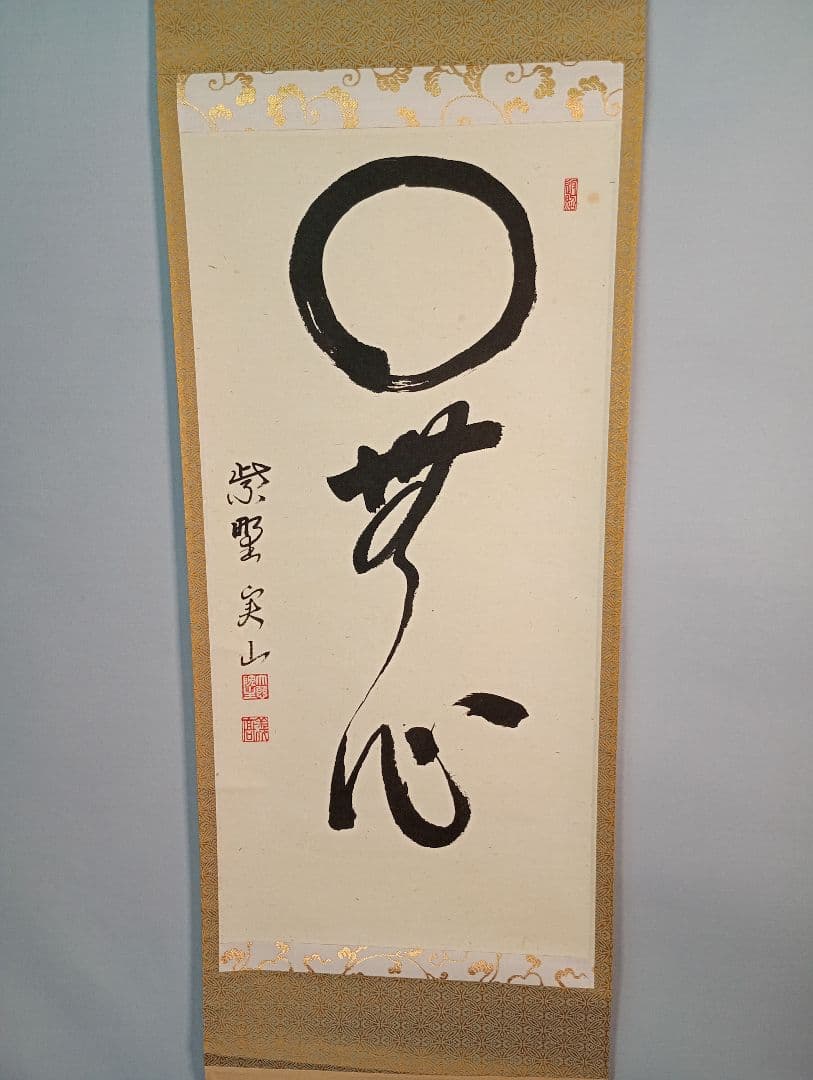 無心
紫野 実山